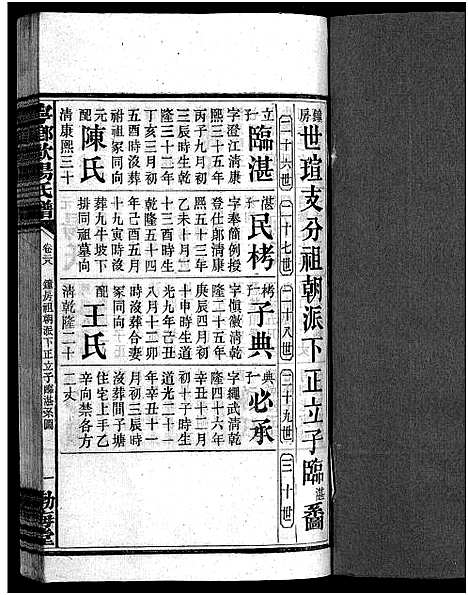 鐘房世瑄支分祖朝派下正立子臨湛系圖
二十六世
二十七世
二十八世
二十九世
三十世
立子
臨湛
字澄江清康
熙三十五年
丙子九月初
三辰時生乾
隆三十二年
丁亥三月初
五酉時沒葬
祔祖冢同向
元配
陳氏
清康熙三十
湛子
民栲
字奉簡例授
登仕郎清康
熙五十三年
乙未十月二
十三酉時生
乾隆五十四
年己酉五月
十九寅時沒
葬九牛坡下
排同祖墓向
栲子
子典
字慎徽清乾
隆二十五年
庚辰四月初
十申時生道
光九年己丑
八月十二卯
時沒葬合妻
冢同向
配
王氏
清乾隆二十
典子
必承
字繩武清乾
隆四十六年
辛丑十二月
初十子時生
道光二十一
年辛丑十一
月初三辰時
沒葬間子塘
住宅上手乙
辛向禁各方
二丈
卷二六
鐘房祖朝派下正立子臨湛系圖
一